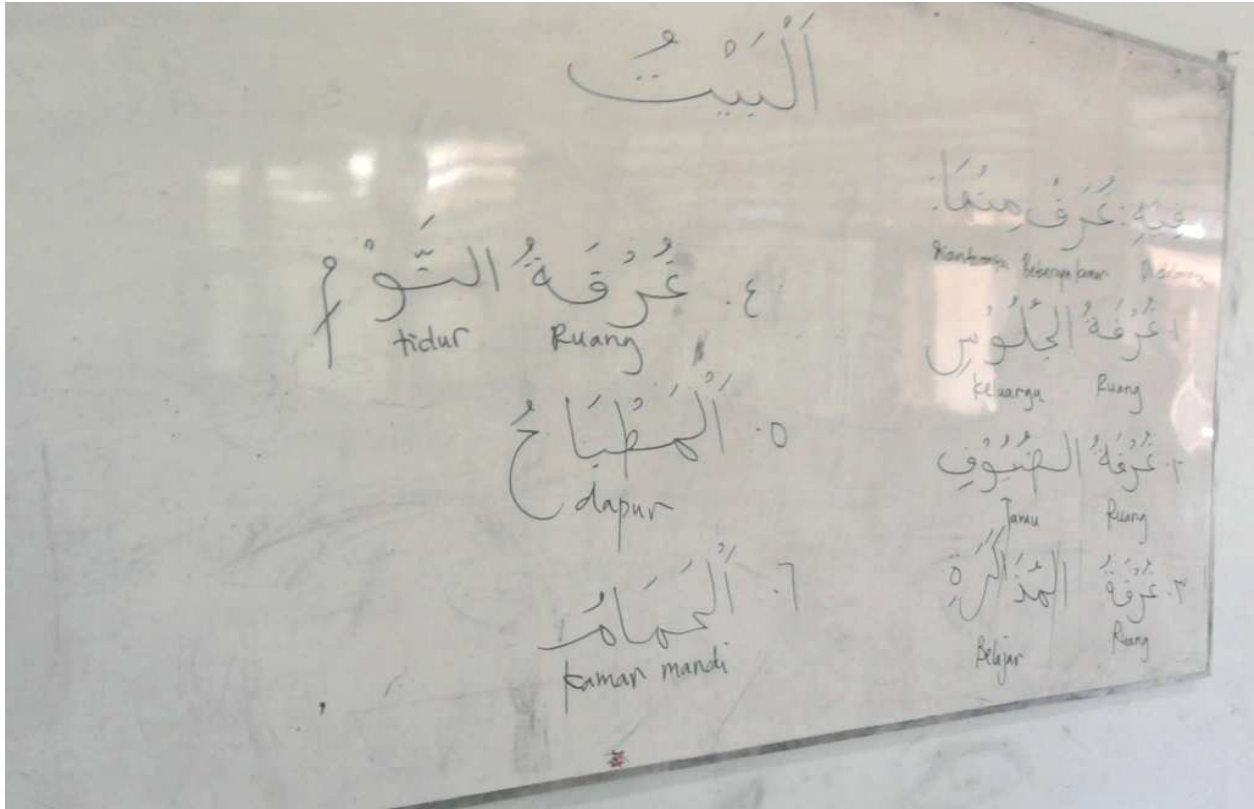 اَلْبَيْتُ
فِيْهِ غُرَفٌ مِنْهَا:
Diantaranya Beberapa kamar Didalamnya
١. غُرْفَةُ الْجُلُوْسِ
Keluarga Ruang
٢. غُرْفَةُ الضُّيُوْفِ
Tamu Ruang
٣. غُرْفَةُ الْمُذَاكَرَةِ
Belajar Ruang
٤. غُرْفَةُ النَّوْمِ
tidur Ruang
٥. اَلْمَطْبَاخُ
dapur
٦. اَلْحَمَامُ
kamar mandi